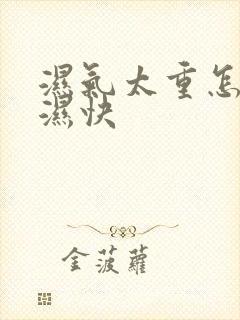 濕氣太重怎
濕快
金菠蘿